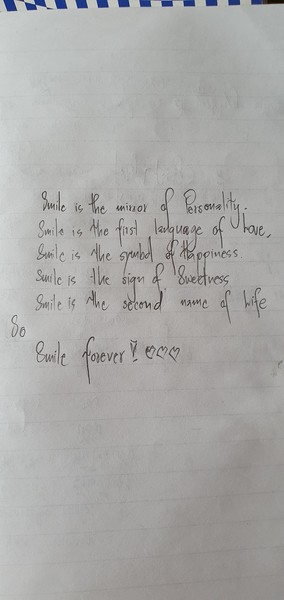 Smile is the mirror of Personality.
Smile is the first language of Love.
Smile is the symbol of Happiness
Smile is the sign of Sweetness
Smile is the second name of life
So
Smile forever! ♡♡♡